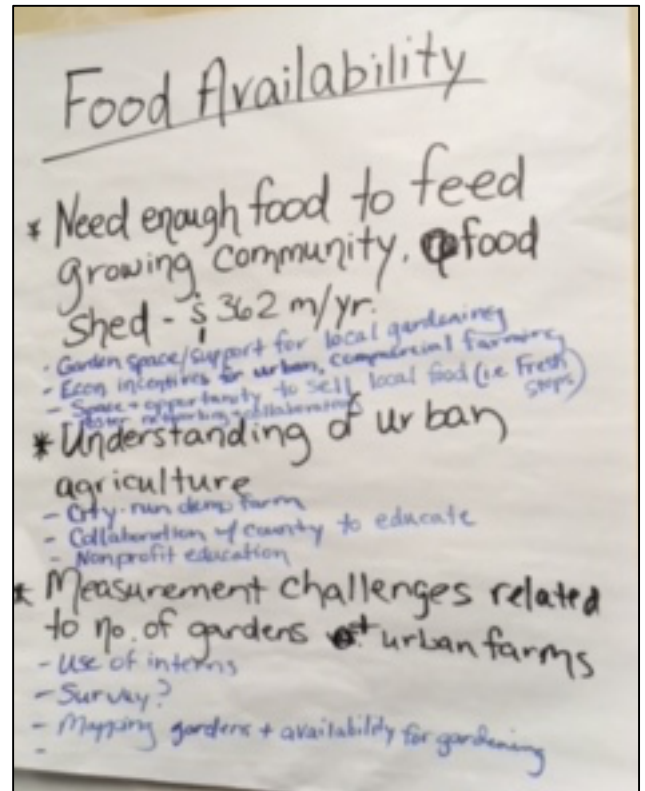 Food Availability
* Need enough food to feed
growing community. food
shed - $362 m/yr.
- Garden space/support for local gardening
- Econ incentives for urban, commercial farming
- Space + opportunity to sell local food (i.e. Fresh
Stops)
- Foster networking + collaborations
* Understanding of urban
agriculture
- City-run demo farm
- Collaboration w/ county to educate
- Nonprofit education
* Measurement challenges related
to no. of gardens + urban farms
- Use of interns
- Survey?
- Mapping gardens + availability for gardening
-